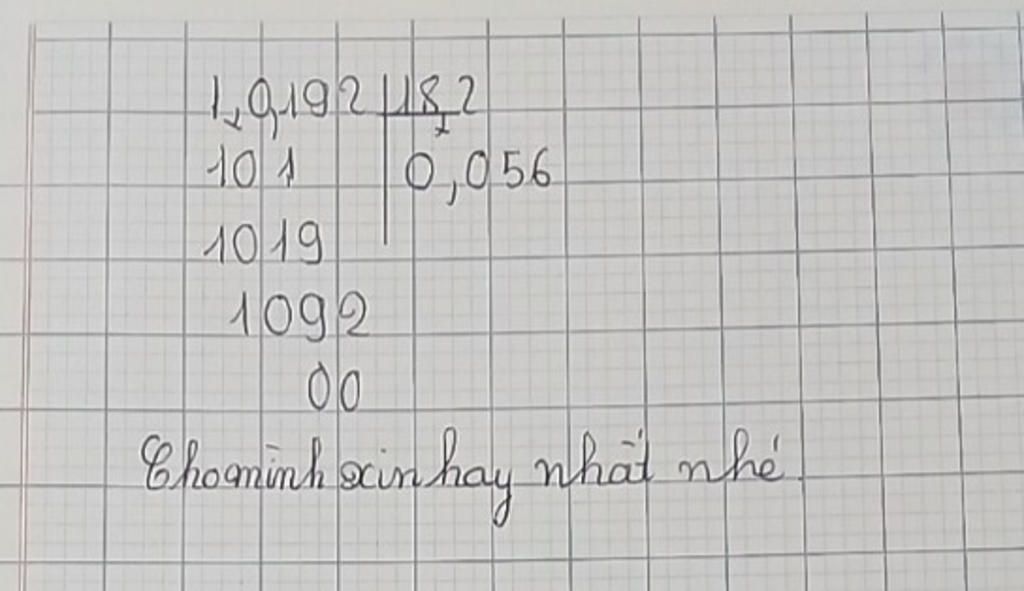 1,0,192 18,2
101 0,056
1019
1092
00
Cho mình xin hay nhất nhé